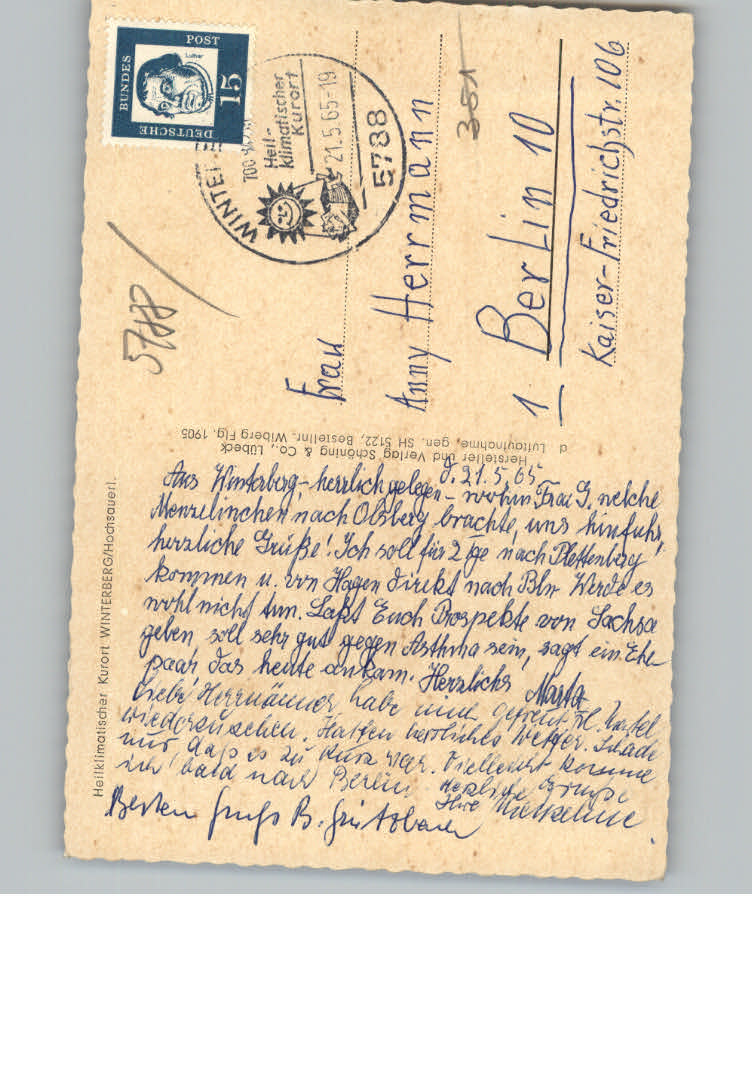 DEUTSCHE
BUNDES
POST
15
Luther
WINTE
700
Heil-
klimatischer
Kurort
21.5.65-19
5788
5788
351
Frau
Anny Herrmann
1 Berlin 10
Kaiser-Friedrichstr. 106
Hersteller und Verlag Schöning & Co., Lübeck
d Luftaufnahme, gen. SH 5122, Bestellnr. Wiberg Flg. 1905
Heilklimatischer Kurort WINTERBERG/Hochsauerl.
d. 21.5.65
Aus Winterberg, - herrlich gelegen - wohin Frau G. welche
Menzelinchen nach Olsberg brachte, uns hinfuhr,
herzliche Grüße! Ich soll für 2 Tge nach Plettenberg
kommen u. von Hagen direkt nach Bln. Werde es
wohl nicht tun. Laßt Euch Prospekte von Sachsa
geben, soll sehr gut gegen Asthma sein, sagt ein Ehe-
paar das heute ankam. Herzlichs
Liebe Herrmänner habe mich gefreut Frl.
wiederzusehen. Hatten herrliches Wetter. Schade
nur daß es zu kurz war. Vielleicht komme
ich bald nach Berlin. Herzliche Grüße
Ihre
Besten Gruß B.